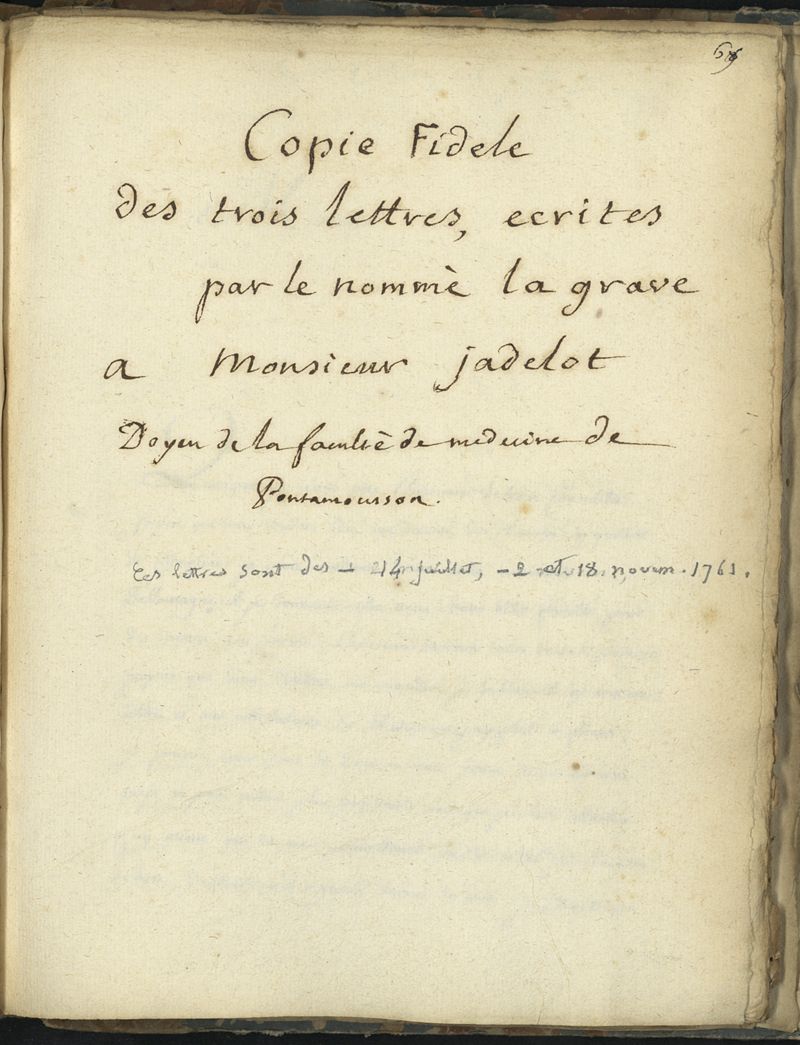 Copie Fidele
des trois lettres, ecrites
par le nommè la grave
a Monsieur jadelot
Doyen de la facultè de medecine de
Pontamousson.
Ces lettres sont des - 24 juillet, - 2 et 18. novem. 1761.